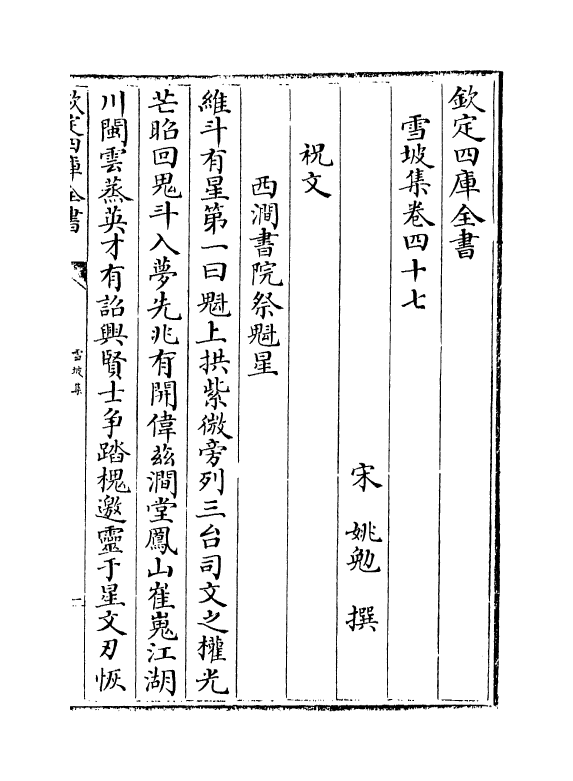 欽定四庫全書
雪坡集卷四十七
宋 姚勉 撰
祝文
西澗書院祭魁星
維斗有星第一曰魁上拱紫微旁列三台司文之權光
芒昭回鬼斗入夢先兆有開偉兹澗堂鳳山崔嵬江湖
川閩雲蒸英才有詔興賢士爭踏槐邀靈于星文刃恢
欽定四庫全書
雪坡集
一